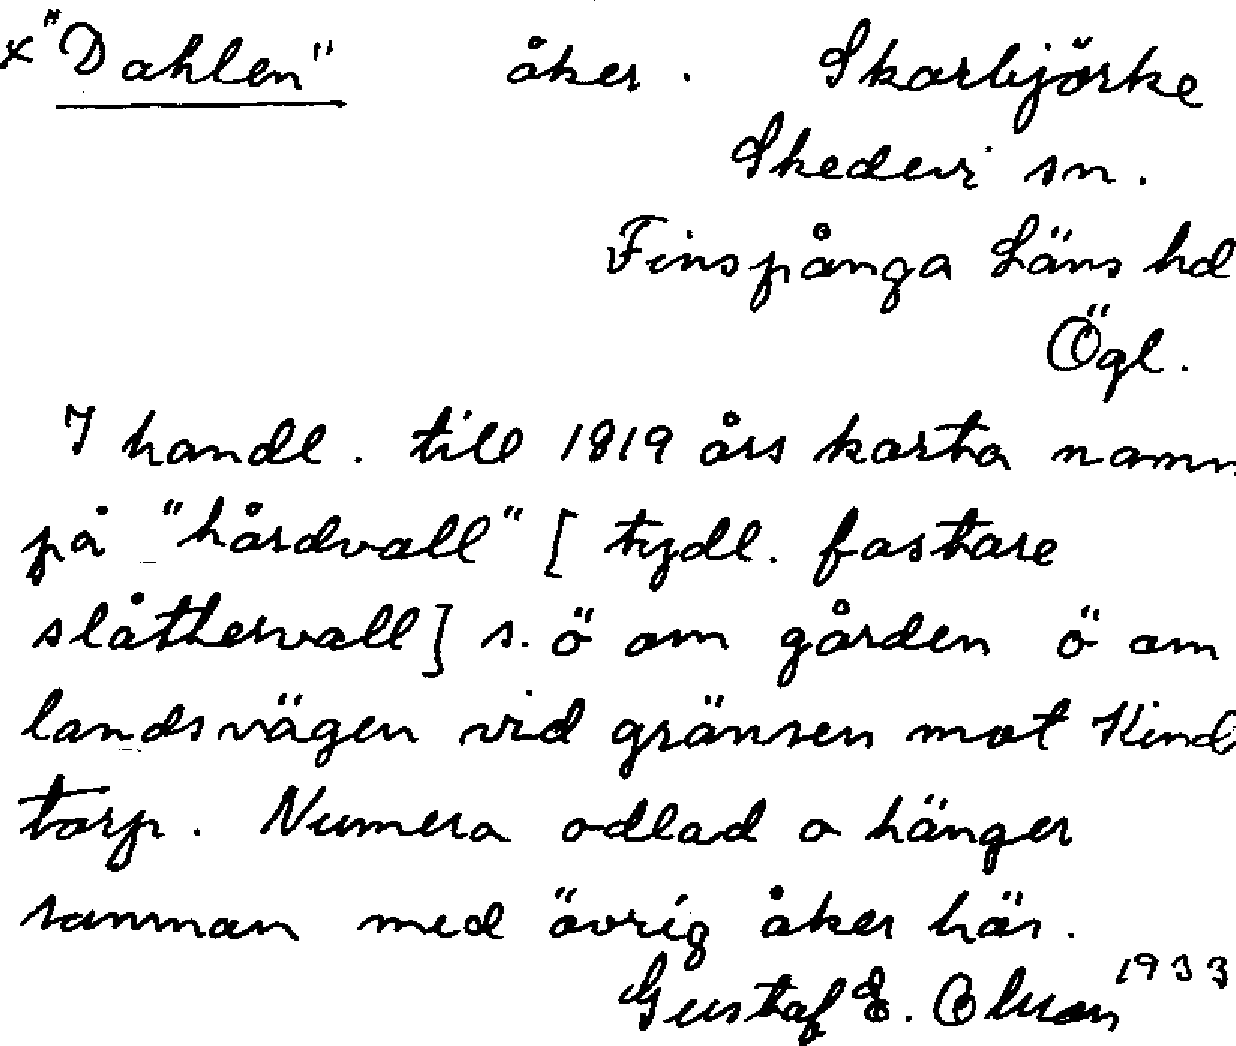 x "Dahlen" åker. Skarbjörke
Skedevi sn.
Finspånga Läns hd
Ögl.
I handl. till 1819 års karta namn
på "hårdvall" [tydl. fastare
slåttervall] s. ö om gården ö om
landsvägen vid gränsen mot Kind
torp. Numera odlad o hänger
samman med övrig åker här.
Gustaf E. Olsson 1933